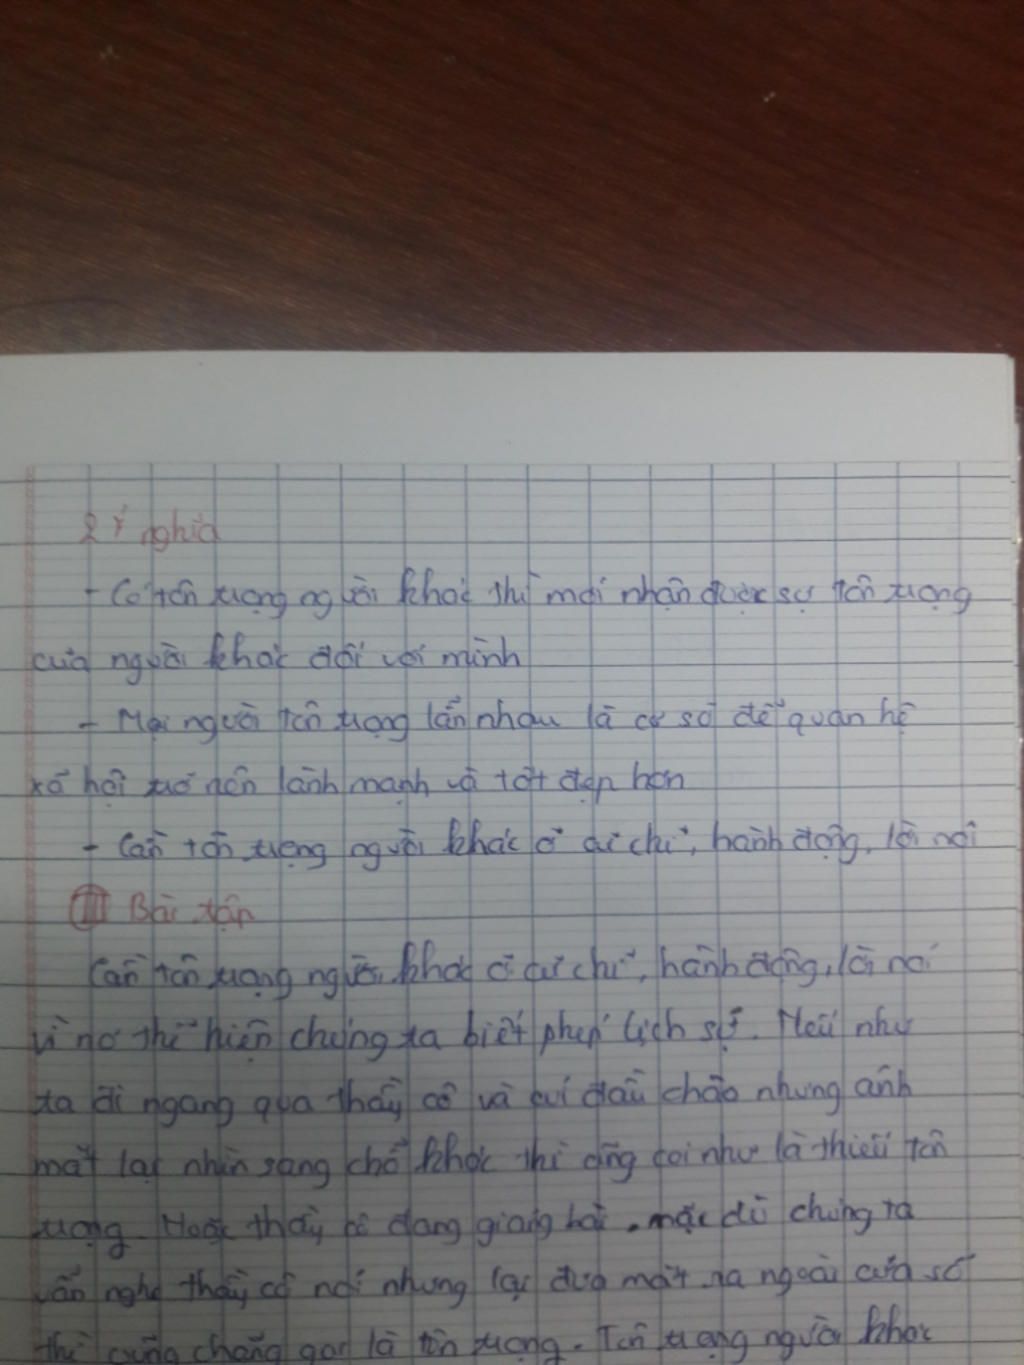 2 Ý nghĩa
- Có tôn trọng người khác thì mới nhận được sự tôn trọng
của người khác đối với mình
- Mọi người tôn trọng lẫn nhau là cơ sở để quan hệ
xã hội trở nên lành mạnh và tốt đẹp hơn
- Cần tôn trọng người khác ở cử chỉ, hành động, lời nói
III Bài tập
Cần tôn trọng người khác ở cử chỉ, hành động, lời nói
vì nó thể hiện chúng ta biết phép lịch sự. Nếu như
ta đi ngang qua thầy cô và cúi đầu chào nhưng ánh
mắt lại nhìn sang chỗ khác thì cũng coi như là thiếu tôn
trọng. Hoặc thầy cô đang giảng bài, mặc dù chúng ta
vẫn nghe thầy cô nói nhưng lại đưa mắt ra ngoài cửa sổ
thì cũng chẳng gọi là tôn trọng. Tôn trọng người khác